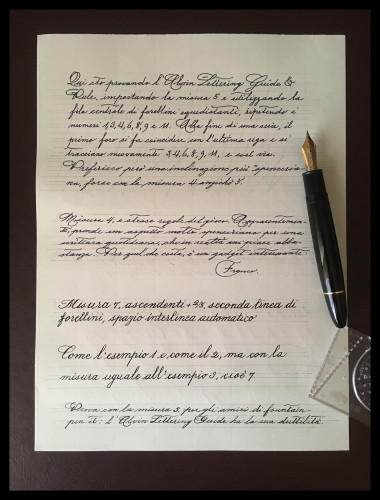 Qui sto provando l'Alvin Lettering Guide &
Rule, impostando la misura 5 e utilizzando la
fila centrale di forellini equidistanti, ripetendo i
numeri 1,3,4,6,8,9 e 11. Alla fine di una serie, il
primo foro si fa coincidere con l'ultima riga e si
tracciano nuovamente 3,4,6,8,9,11, e così via.
Preferisco però una inclinazione più "spenceria-
na, forse con la misura 4 anziché 5.
Misura 4, e stesse regole del gioco. Apparentemen-
te, prende un aspetto molto spenceriano per una
scrittura quotidiana, che in realtà mi piace abba-
stanza. Per quel che costa, è un gadget interessante.
Franco.
Misura 7, ascendenti + 2/3, seconda linea di
forellini, spazio interlinea automatico
Come l'esempio 1 e come il 2, ma con la
misura uguale all'esempio 3, cioè 7.
Prova con la misura 3, per gli amici di fountain-
pen.it: l'Alvin Lettering Guide ha la sua duttilità.